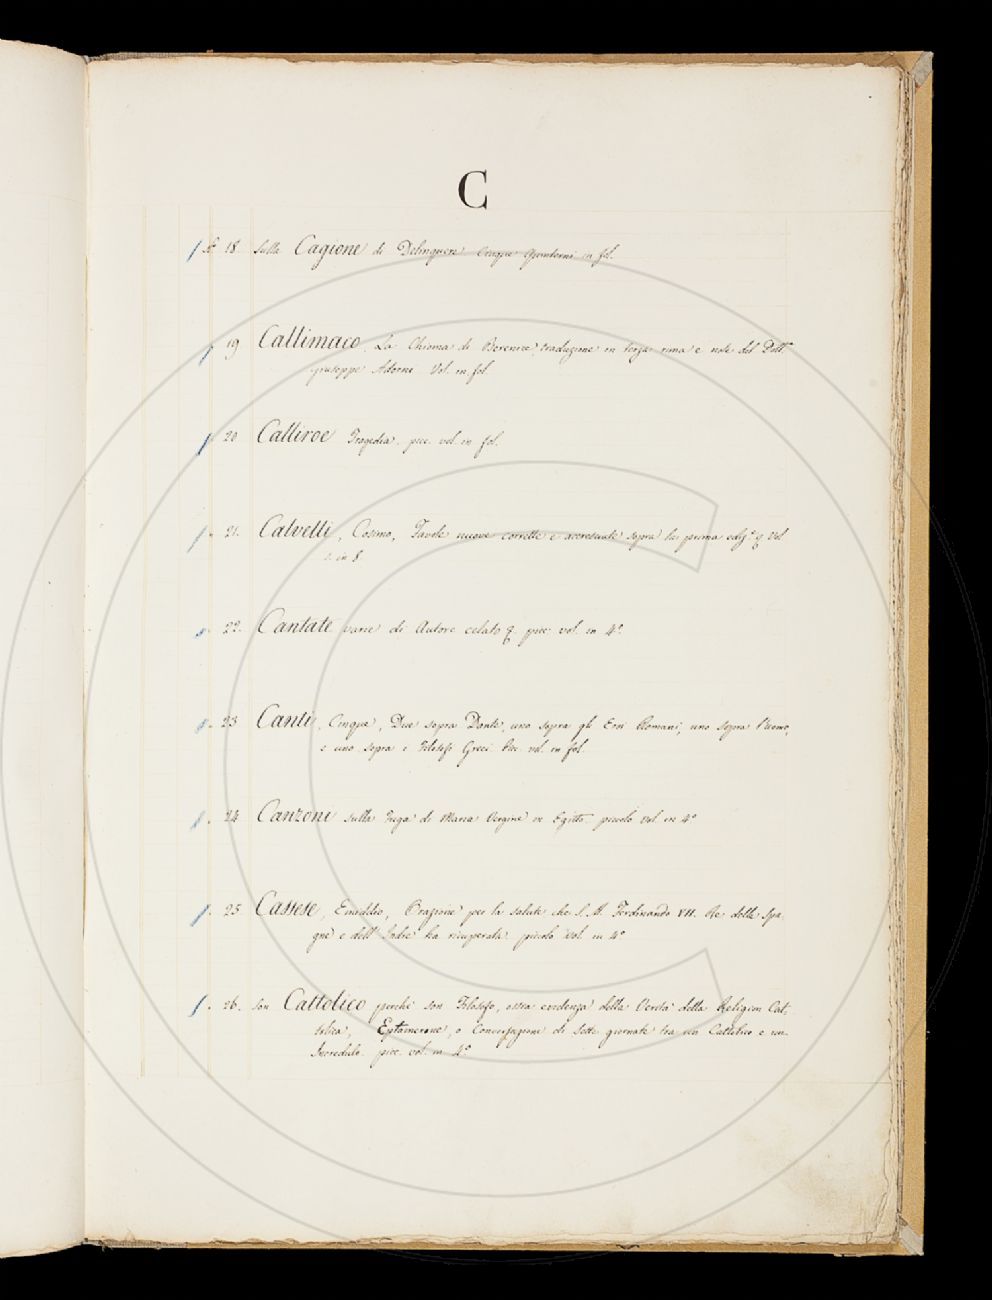 C
N 18 Sulla Cagione di Delinquere Cinque Quinterni in fol.
19 Callimaco. La Chioma di Berenice traduzione in terza rima e note del Dott.
Giuseppe Adorni Vol. in fol.
20 Calliroe Tragedia. picc. vol. in fol.
21. Calvelli, Cosimo, Tavole nuove corrette e accresciute sopra la prima vol.
in 8
22. Cantate varie di Autore celato picc. vol. in 4°.
23 Canti, Cinque, Due sopra Dante, uno sopra gli Eroi Romani, uno sopra l'Uomo,
e uno sopra i Filosofi Greci Picc. vol. in fol.
24 Canzoni sulla Fuga di Maria Vergine in Egitto piccolo vol in 4°
25 Cassese, Emiddio, Orazione per la salute che S. M. Ferdinando VII. Re delle Spa
gne e dell' Indie ha ricuperata piccolo vol. in 4°
26. Son Cattolico perché son Filosofo, ossia evidenza della Verità della Religion Cat-
tolica, Eptamerone, o Conversazione di Sette giornate tra un Cattolico e un
Incredulo picc. vol. in 4°